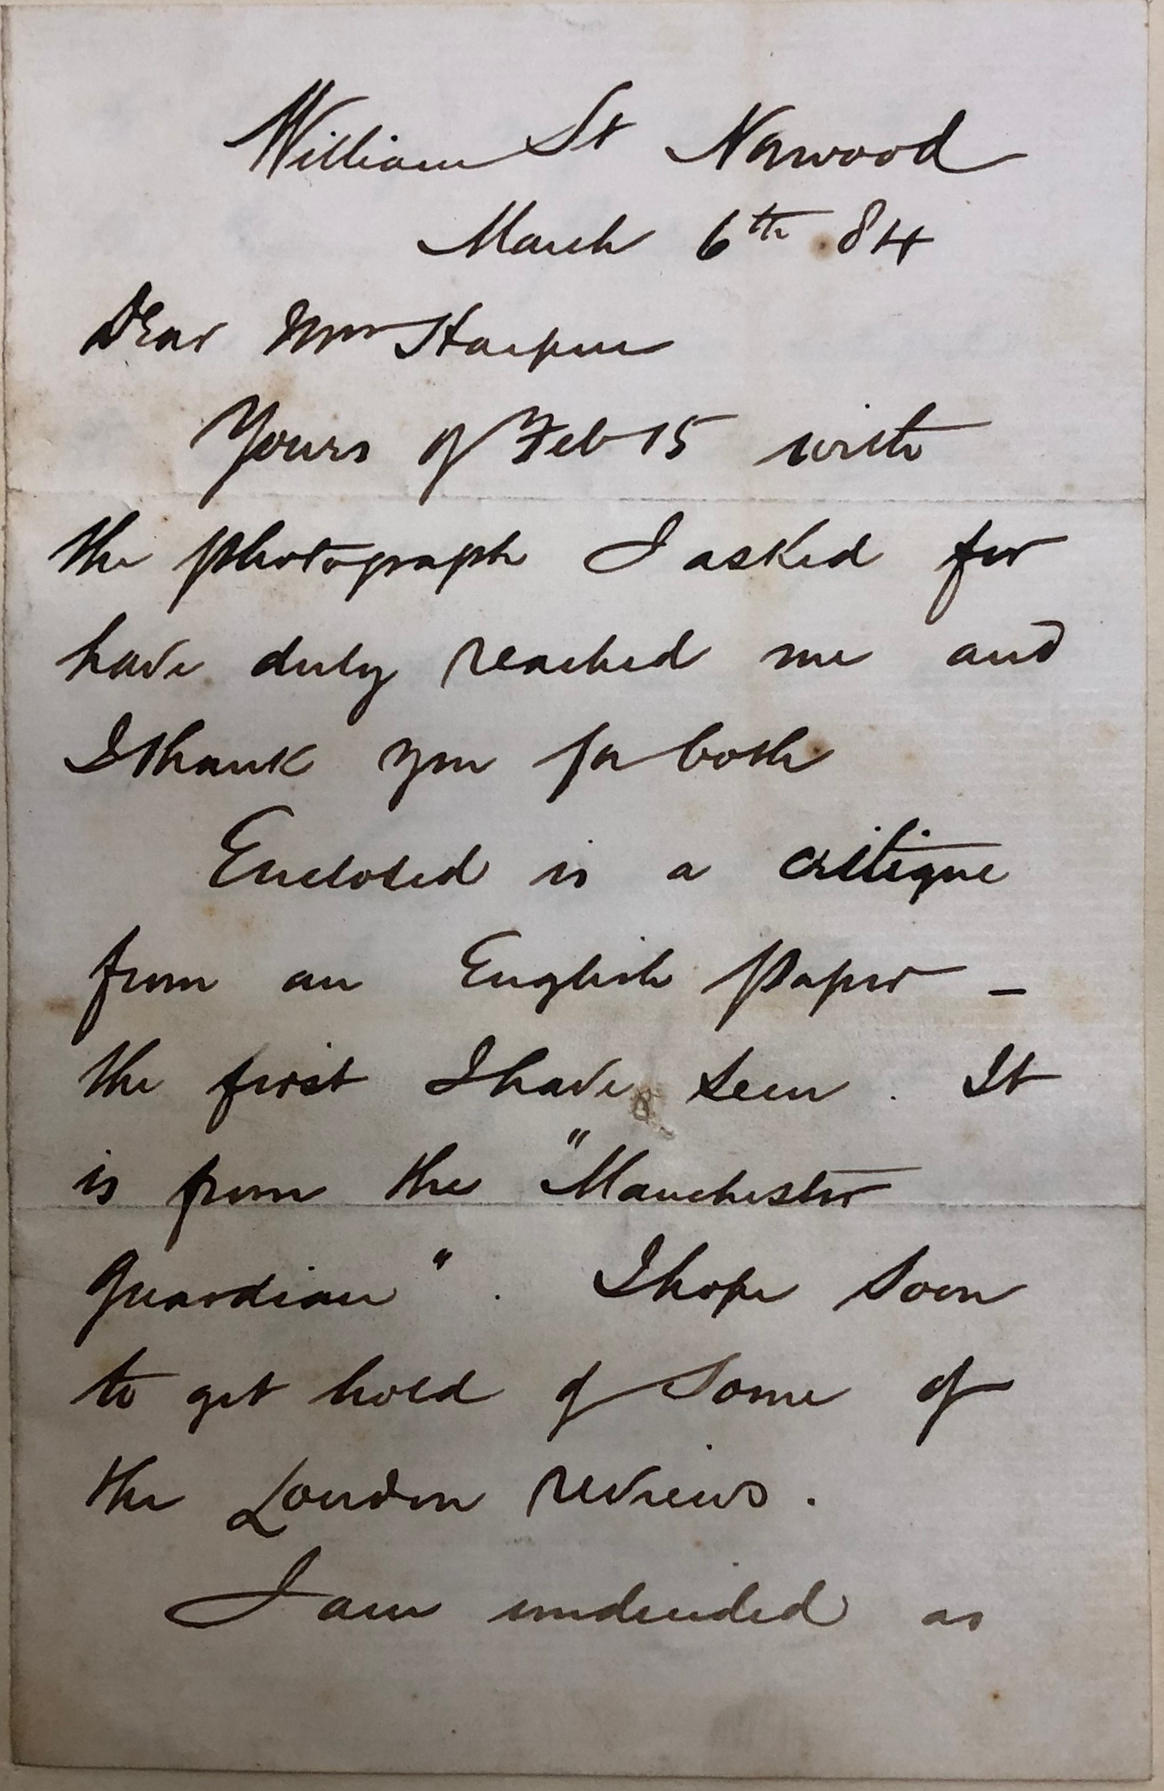 William St Norwood
March 6th 84
Dear Mrs Harpur
Yours of Feb 15 with
the photograph I asked for
have duly reached me and
I thank you for both
Enclosed is a critique
from an English Paper –
the first I have seen. It
is from the "Manchester
Guardian". I hope soon
to get hold of some of
the London reviews.
I am undecided as